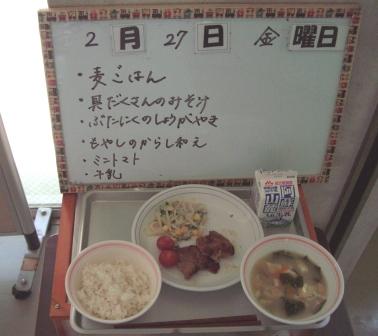 2月27日 金曜日
・麦ごはん
・具だくさんのみそ汁
・ぶたにくのしょうがやき
・もやしのからし和え
・ミニトマト
・牛乳
阿蘇